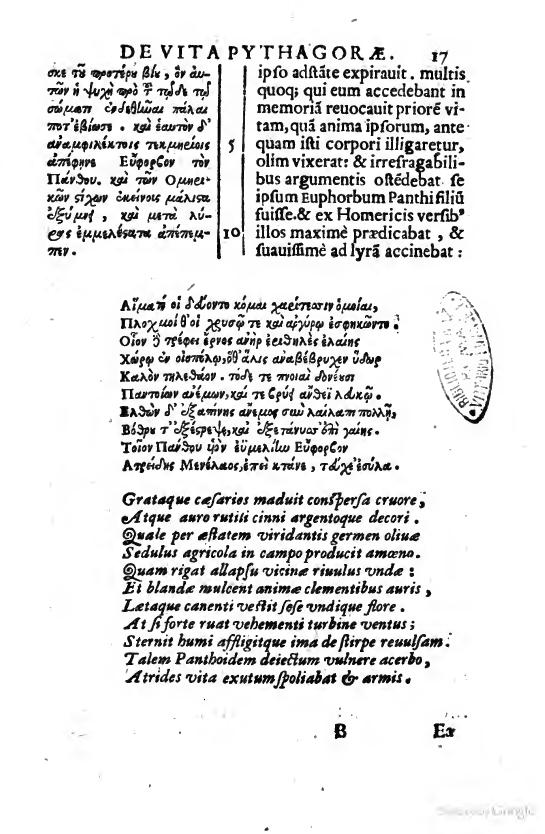 DE VITA PYTHAGORÆ. 17
σκε τοῦ προτέρου βίου, ὃν αὐ-
τῶν ἡ ψυχὴ πρὸ τοῦ τῷδε τῷ
σώματι ἐνδεθῆναι πάλαι
ποτ' ἐβίωσε. καὶ ἑαυτὸν δ'
ἀναμφιλέκτοις τεκμηρίοις
ἀπέφηνε Εὔφορβον τὸν
Πάνθου. καὶ τῶν Ὁμηρι-
κῶν στίχων ἐκείνους μάλιστα
ἐξύμνει, καὶ μετὰ λύ-
ρας ἐμμελέστατα ἀνέπεμ-
πεν.
5
10
ipso adstāte expirauit. multis
quoq; qui eum accedebant in
memoriā reuocauit priorē vi-
tam, quā anima ipsorum, ante
quam isti corpori illigaretur,
olim vixerat: & irrefragabili-
bus argumentis ostēdebat se
ipsum Euphorbum Panthi filiū
fuisse. & ex Homericis versibꝰ
illos maximè prædicabat, &
suauissimè ad lyrā accinebat:
Αἵματί οἱ δεύοντο κόμαι χαρίτεσσιν ὁμοῖαι,
Πλοχμοί θ' οἳ χρυσῷ τε καὶ ἀργύρῳ ἐσφήκωντο.
Οἷον δὲ τρέφει ἔρνος ἀνὴρ ἐριθηλὲς ἐλαίης
Χώρῳ ἐν οἰοπόλῳ, ὅθ' ἅλις ἀναβέβρυχεν ὕδωρ
Καλὸν τηλεθάον. τόδε τε πνοιαὶ δονέουσι
Παντοίων ἀνέμων, καί τε βρύει ἄνθεϊ λευκῷ.
Ἐλθὼν δ' ἐξαπίνης ἄνεμος σὺν λαίλαπι πολλῇ,
Βόθρου τ' ἐξέστρεψε, καὶ ἐξετάνυσσ' ἐπὶ γαίης.
Τοῖον Πάνθου υἱὸν ἐϋμελίω Εὔφορβον
Ἀτρείδης Μενέλαος, ἐπεὶ κτάνε, τεύχε' ἐσύλα.
Grataque cæsarios maduit conspersa cruore,
Atque auro rutili cinni argentoque decori.
Quale per æstatem viridantis germen oliuæ
Sedulus agricola in campo producit amœno.
Quam rigat allapsu vicinæ riuulus vndæ:
Et blandæ mulcent animæ clementibus auris,
Lætaque canenti vestit sese vndique flore.
At si forte ruat vehementi turbine ventus;
Sternit humi affligitque ima de stirpe reuulsam.
Talem Panthoidem deiectum vulnere acerbo,
Atrides vita exutum spoliabat & armis.
B Ex